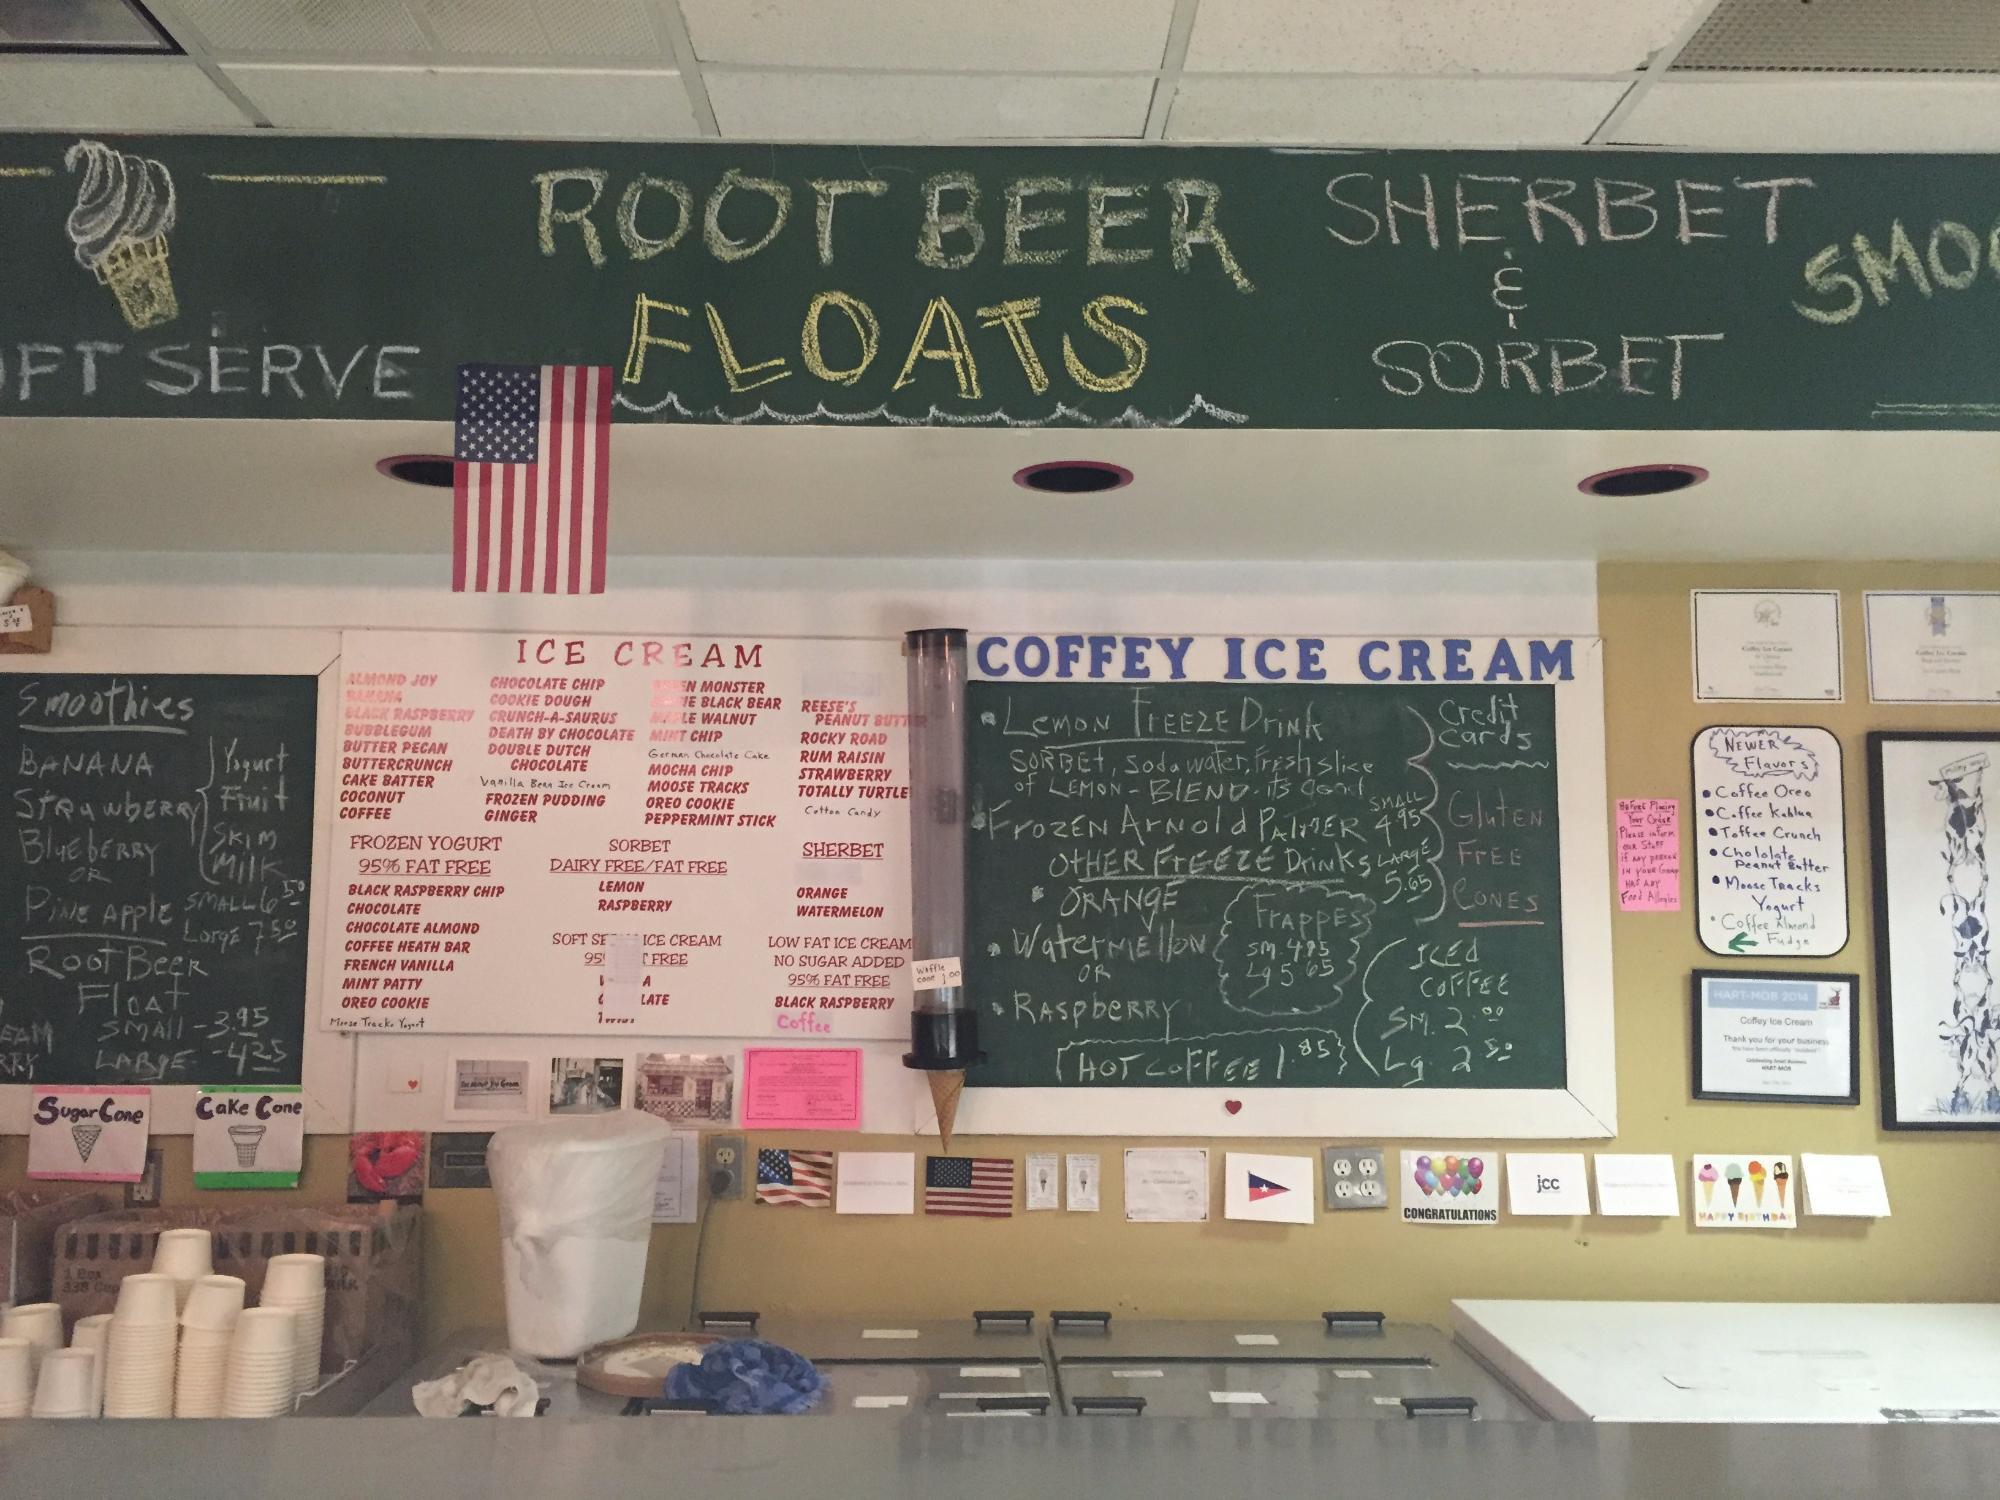 ROOT BEER
FLOATS
SHERBET
&
SORBET
SMOO
OFT SERVE
Smoothies
BANANA
STrawberry
Blueberry
OR
Pine Apple
Yogurt
Fruit
Skim
Milk
SMALL 6.50
Large 7.50
Root Beer
Float
SMALL - 3.95
LARGE - 4.25
EAM
RRY
ICE CREAM
ALMOND JOY
BANANA
BLACK RASPBERRY
BUBBLEGUM
BUTTER PECAN
BUTTERCRUNCH
CAKE BATTER
COCONUT
COFFEE
CHOCOLATE CHIP
COOKIE DOUGH
CRUNCH-A-SAURUS
DEATH BY CHOCOLATE
DOUBLE DUTCH
CHOCOLATE
Vanilla Bean Ice Cream
FROZEN PUDDING
GINGER
EN MONSTER
IE BLACK BEAR
MAPLE WALNUT
MINT CHIP
German Chocolate Cake
MOCHA CHIP
MOOSE TRACKS
OREO COOKIE
PEPPERMINT STICK
REESE'S
PEANUT BUTTER
ROCKY ROAD
RUM RAISIN
STRAWBERRY
TOTALLY TURTLE
Cotton Candy
FROZEN YOGURT
95% FAT FREE
BLACK RASPBERRY CHIP
CHOCOLATE
CHOCOLATE ALMOND
COFFEE HEATH BAR
FRENCH VANILLA
MINT PATTY
OREO COOKIE
Moose Tracks Yogurt
SORBET
DAIRY FREE/FAT FREE
LEMON
RASPBERRY
SOFT SERVE ICE CREAM
95 FREE
SHERBET
ORANGE
WATERMELON
LOW FAT ICE CREAM
NO SUGAR ADDED
95% FAT FREE
BLACK RASPBERRY
Coffee
Waffle
cone 1.00
COFFEY ICE CREAM
Lemon Freeze Drink
SORBET, soda water, fresh slice
of LEMON - BLEND - its good
Frozen Arnold Palmer
OTHER FREEZE Drinks
SMALL
4.95
LARGE
5.65
ORANGE
Watermellon
OR
Raspberry
HOT COFFEE 1.85
Frappes
sm. 4.95
Lg 5.65
Credit
Cards
Gluten
FREE
CONES
ICED
COFFEE
Sm. 2.00
Lg. 2.50
Before Placing
Your Order
Please inform
our Staff
if any person
in your Group
has any
Food Allergies
Newer
Flavors
Coffee Oreo
Coffee Kahlua
Toffee Crunch
Chololate
Peanut Butter
Moose Tracks
Yogurt
Coffee Almond
Fudge
HART-MOB 2014
Coffey Ice Cream
Thank you for your business
HART-MOB
Sugar Cone
Cake Cone
CONGRATULATIONS
jcc
HAPPY BIRTHDAY
1 Box